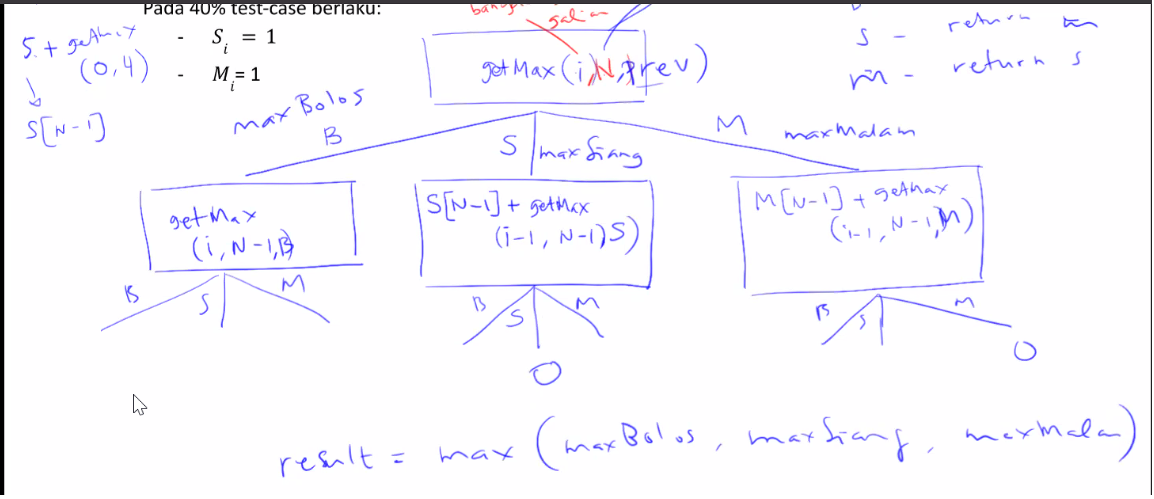 Pada 40% test-case berlaku:
- S_i = 1
- M_i = 1
S + getMax
(0,4)
S[N-1]
galian
getMax(i,N,Prev)
S - return m
m - return s
maxBolos
B
S
maxSiang
M
maxMalam
getMax
(i, N-1, B)
S[N-1] + getMax
(i-1, N-1) S)
M[N-1] + getMax
(i-1, N-1, M)
B S M
B S M
B S M
O
O
result = max (maxBolos, maxSiang, maxMalam)